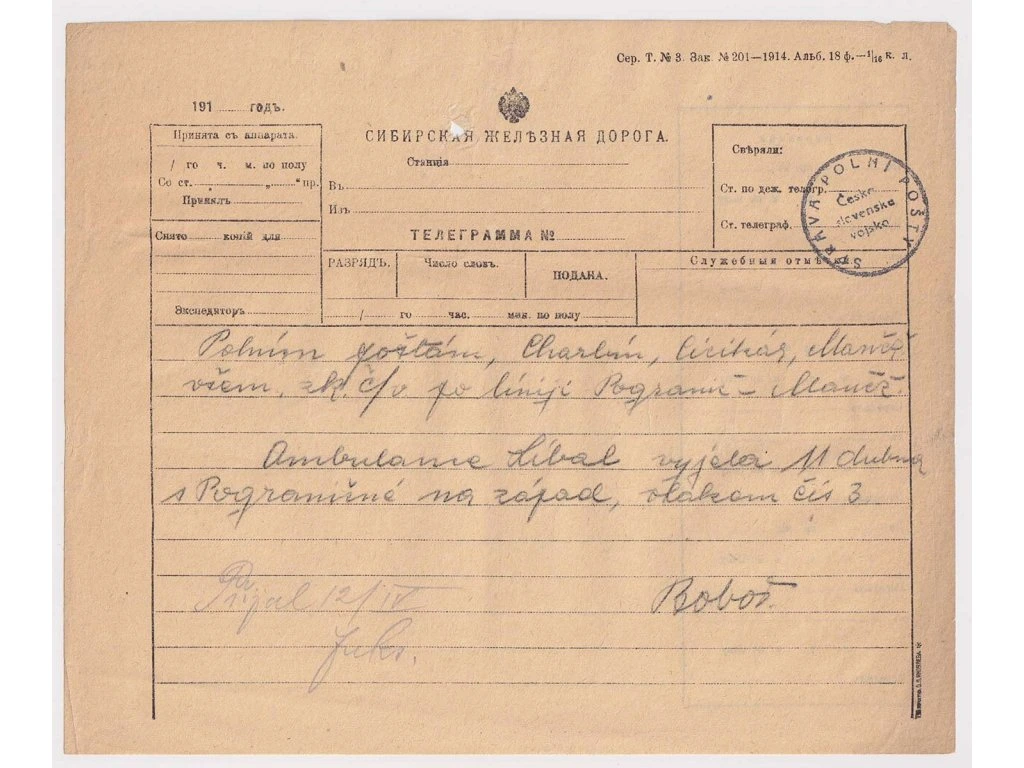 Сер. Т. № 3. Зак. № 201—1914. Альб. 18 ф.—1/16 к. л.
191 годъ.
Принята съ аппарата.
/ го ч. м. по полу
Со ст. „ “ пр.
Принялъ
Снято копій для
Экспедиторъ
СИБИРСКАЯ ЖЕЛѢЗНАЯ ДОРОГА.
Станція
Въ
Изъ
ТЕЛЕГРАММА №
Свѣряли:
Ст. по деж. телегр.
Ст. телеграф.
SPRÁVA POLNÍ POŠTY
Česko
slovenske
vojsko
РАЗРЯДЪ.
Число словъ.
ПОДАНА.
Служебныя отмѣтки
/ го час. мин. по полу
Polním poštám, Charbin, Cicikár, Mančž
všem. zk. č/v po liniji Pogranič - Mančž.
Ambulance Líbal vyjela 11 dubna
s Pograničné na západ, vlakom čís 3
Prijal 12/IV
Boboš.